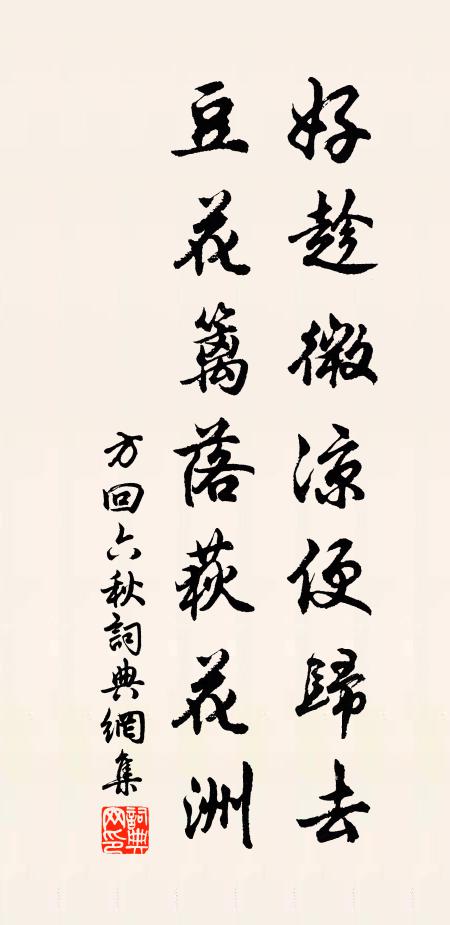 好趁微涼便歸去
豆花籬落萩花洲
方回六秋詞典網集
詞典網印